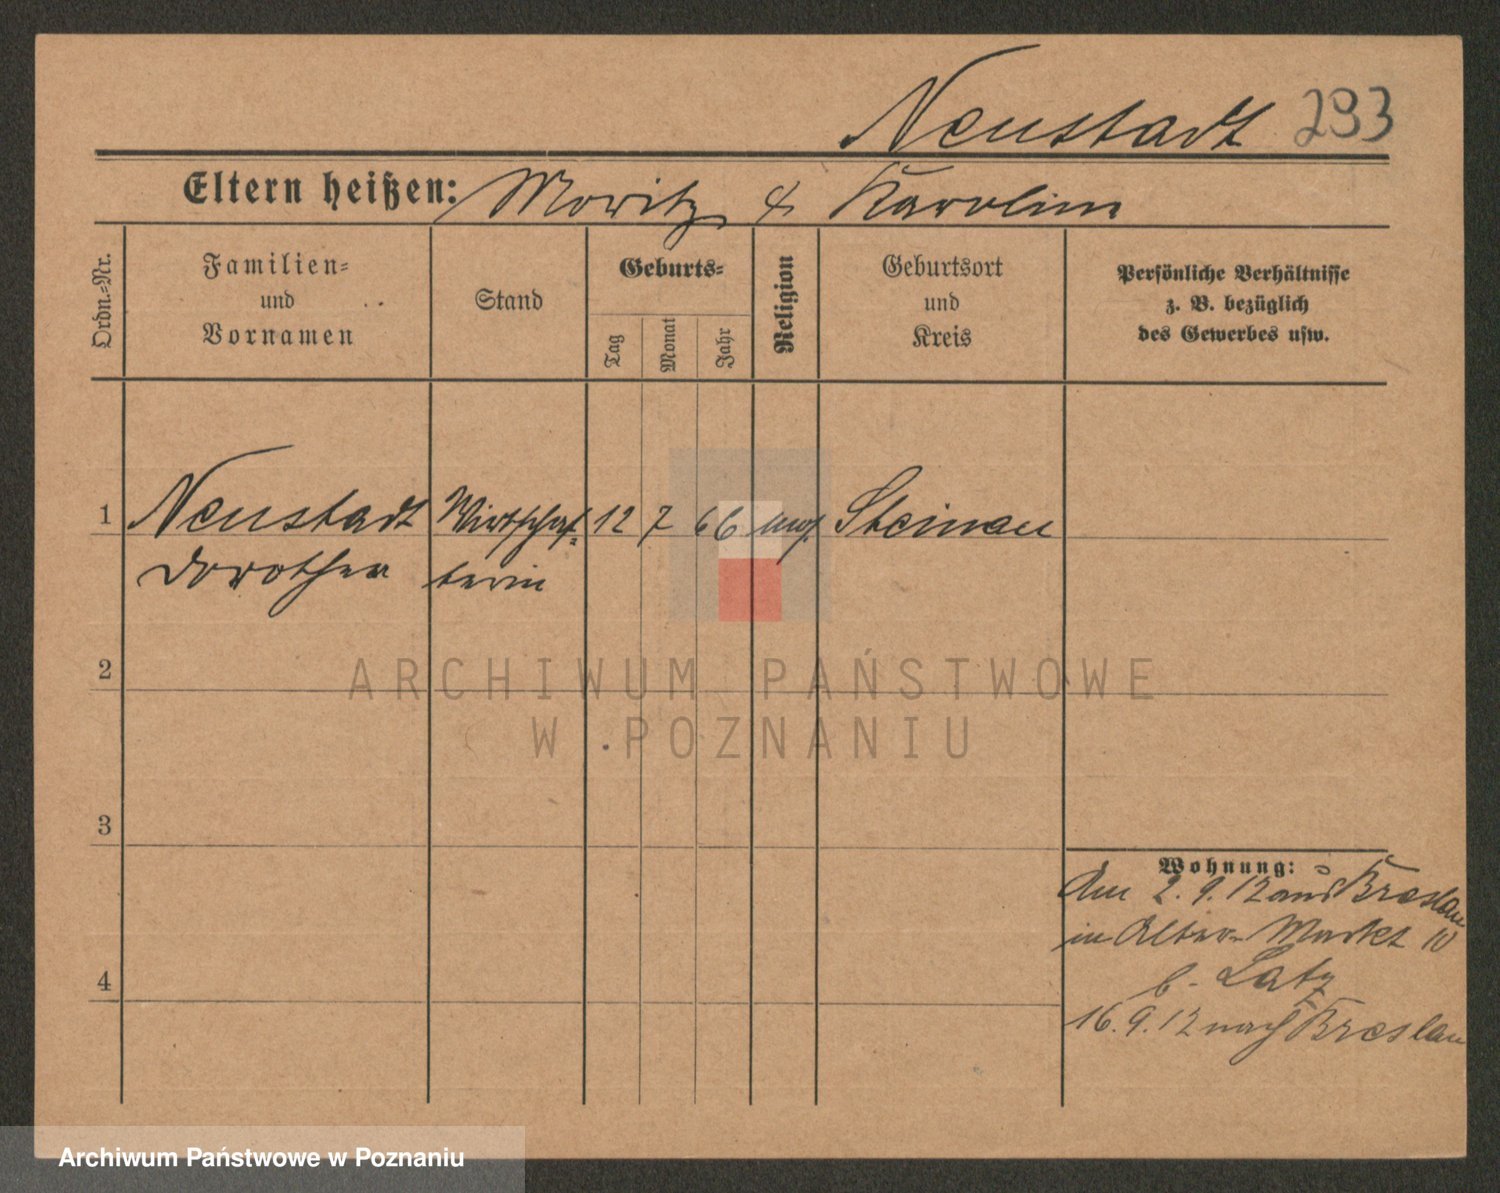 Neustadt 293
Eltern heißen: Moritz & Karoline
Ordn.-Nr.
Familien-
und
Vornamen
Stand
Geburts-
Tag
Monat
Jahr
Religion
Geburtsort
und
Kreis
Persönliche Verhältnisse
z. B. bezüglich
des Gewerbes usw.
1 Neustadt Wirtschaf- 12 7 66 Steinau
Dorothea terin
2
3
4
Wohnung:
Am 2.9.12 aus Breslau
in Alter Markt 10
b. Latz
16.9.12 nach Breslau
ARCHIWUM PAŃSTWOWE
W POZNANIU
Archiwum Państwowe w Poznaniu